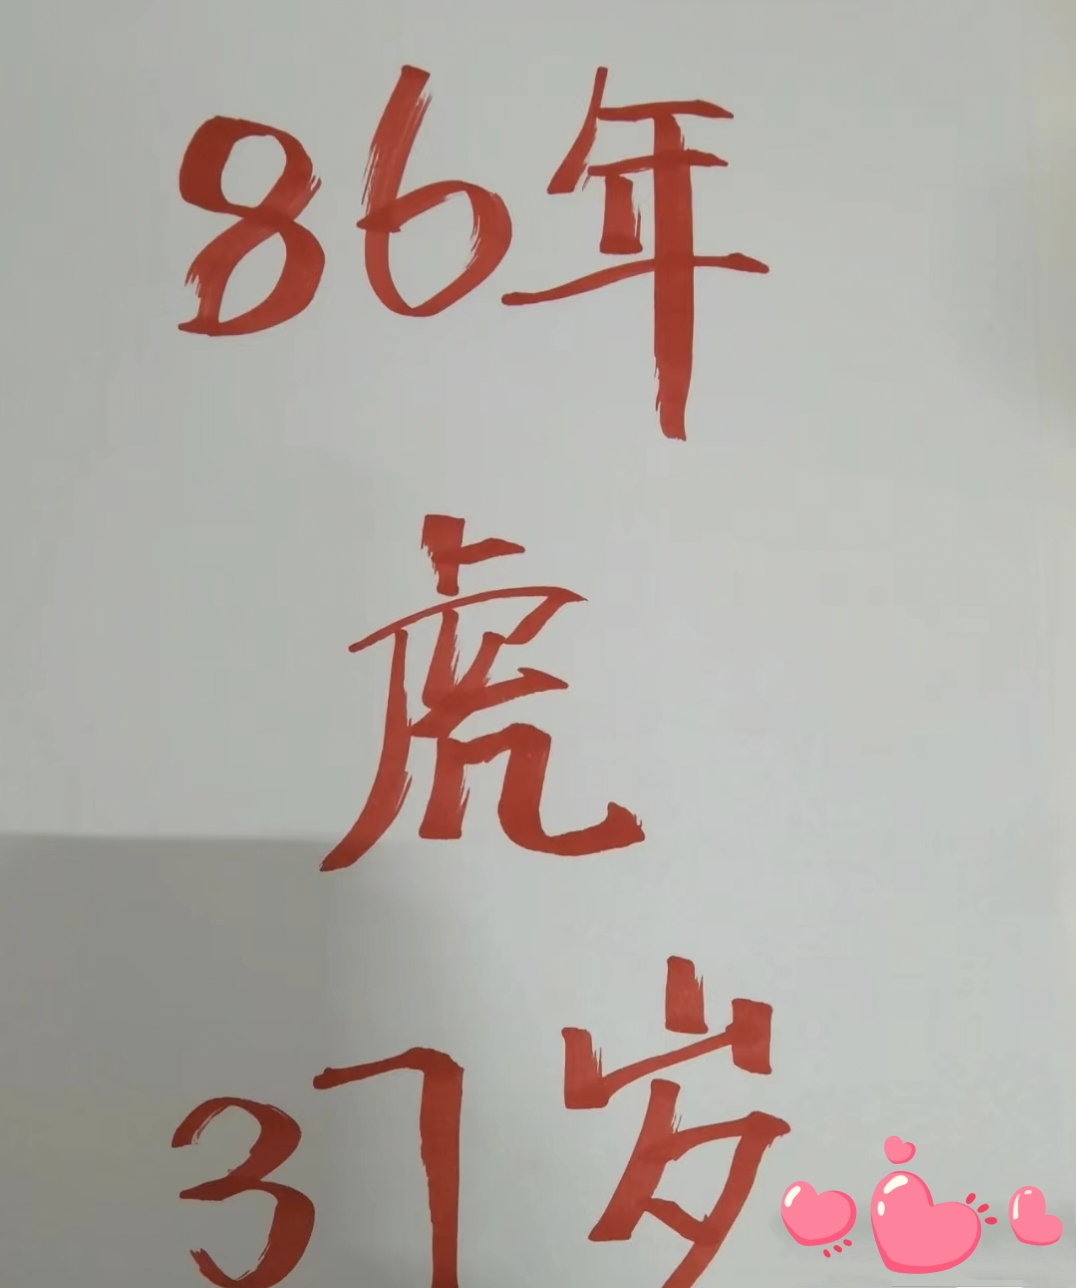 86年
虎
37岁